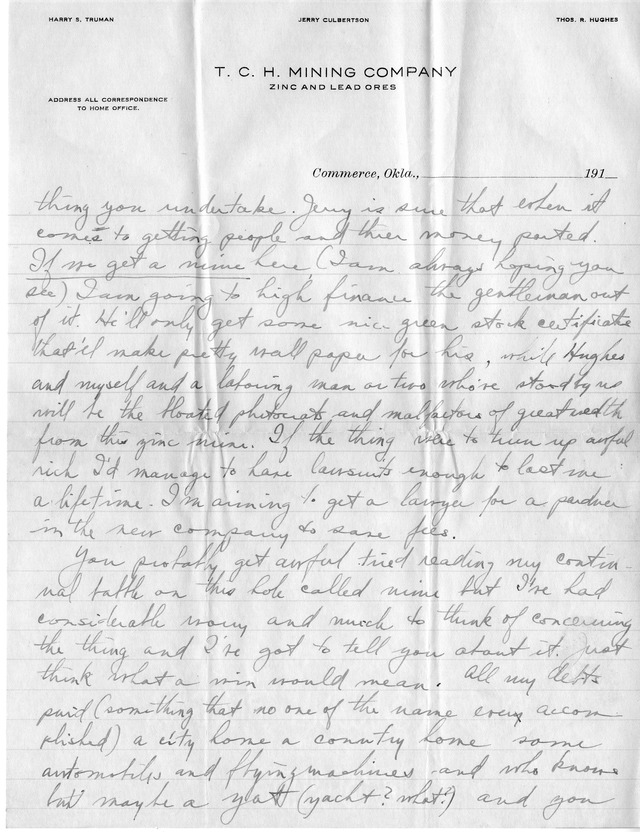 HARRY S. TRUMAN JERRY CULBERTSON THOS. R. HUGHES
T. C. H. MINING COMPANY
ZINC AND LEAD ORES
ADDRESS ALL CORRESPONDENCE
TO HOME OFFICE.
Commerce, Okla., 191
thing you undertake. Jerry is sure that when it
comes to getting people and thier money parted.
If we get a mine here (I am always hoping you
see) I am going to high finance the gentleman out
of it. He'll only get some nice green stock certificates
that'll make pretty wall paper for his, while Hughes
and myself and a laboring man or two who've stood by us
will be the bloated plutocrats and malfactors of great wealth
from this zinc mine. If the thing were to turn up awful
rich I'd manage to have lawsuits enough to last me
a lifetime. I'm aiming to get a lawyer for a pardner
in the new company to save fees.
You probably get awful tired reading my contin-
ual tattle on this hole called mine but I've had
considerable worry and much to think of concerning
the thing and I've got to tell you about it. Just
think what a win would mean. All my debts
paid (something that no one of the name ever accom-
plished) a city home a country home some
automobiles and flying machines and who knows
but maybe a yatt (yacht? what?) and you